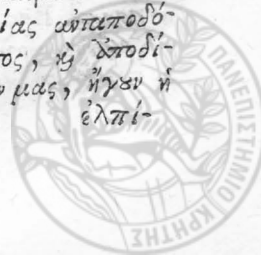 ίας ἀνταποδό-
τος, καὶ ἀποδί-
ν μας, ἤγουν ἡ
ἐλπί-
ΠΑΝΕΠΙΣΤΗΜΙΟ ΚΡΗΤΗΣ